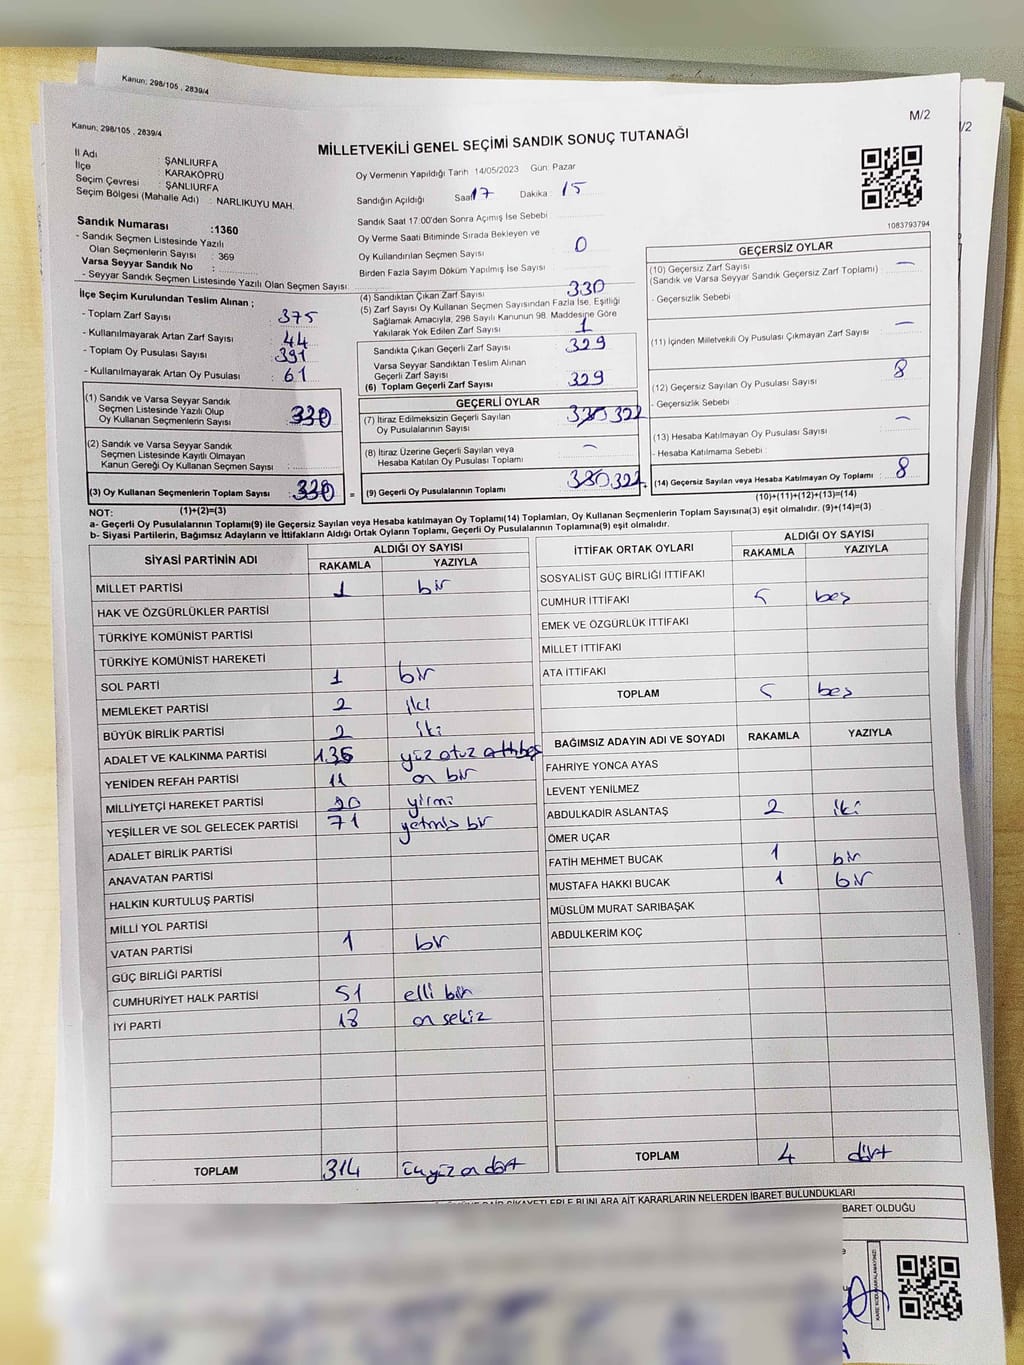 Kanun; 298/105 , 2839/4
Kanun; 298/105 , 2839/4
M/2
MİLLETVEKİLİ GENEL SEÇİMİ SANDIK SONUÇ TUTANAĞI
İl Adı : ŞANLIURFA
İlçe : KARAKÖPRÜ
Seçim Çevresi : ŞANLIURFA
Seçim Bölgesi (Mahalle Adı) : NARLIKUYU MAH.
Sandık Numarası :1360
- Sandık Seçmen Listesinde Yazılı
Olan Seçmenlerin Sayısı : 369
Varsa Seyyar Sandık No :
- Seyyar Sandık Seçmen Listesinde Yazılı Olan Seçmen Sayısı:
Oy Vermenin Yapıldığı Tarih 14/05/2023 Gün: Pazar
Sandığın Açıldığı Saat 17 Dakika : 15
Sandık Saat 17:00'den Sonra Açımış İse Sebebi
Oy Verme Saati Bitiminde Sırada Bekleyen ve
Oy Kullandırılan Seçmen Sayısı 0
Birden Fazla Sayım Döküm Yapılmış İse Sayısı
1083793794
İlçe Seçim Kurulundan Teslim Alınan ;
- Toplam Zarf Sayısı : 375
- Kullanılmayarak Artan Zarf Sayısı : 44
- Toplam Oy Pusulası Sayısı : 391
- Kullanılmayarak Artan Oy Pusulası : 61
(1) Sandık ve Varsa Seyyar Sandık
Seçmen Listesinde Yazılı Olup
Oy Kullanan Seçmenlerin Sayısı : 330
(2) Sandık ve Varsa Seyyar Sandık
Seçmen Listesinde Kayıtlı Olmayan
Kanun Gereği Oy Kullanan Seçmen Sayısı :
(3) Oy Kullanan Seçmenlerin Toplam Sayısı : 330
(1)+(2)=(3)
(4) Sandıktan Çıkan Zarf Sayısı 330
(5) Zarf Sayısı Oy Kullanan Seçmen Sayısından Fazla İse, Eşitliği
Sağlamak Amacıyla, 298 Sayılı Kanunun 98. Maddesine Göre
Yakılarak Yok Edilen Zarf Sayısı 1
Sandıkta Çıkan Geçerli Zarf Sayısı 329
Varsa Seyyar Sandıktan Teslim Alınan
Geçerli Zarf Sayısı
(6) Toplam Geçerli Zarf Sayısı 329
GEÇERLİ OYLAR
(7) İtiraz Edilmeksizin Geçerli Sayılan
Oy Pusulalarının Sayısı 330 322
(8) İtiraz Üzerine Geçerli Sayılan veya
Hesaba Katılan Oy Pusulası Toplamı –
= (9) Geçerli Oy Pusulalarının Toplamı 330 322
GEÇERSİZ OYLAR
(10) Geçersiz Zarf Sayısı –
(Sandık ve Varsa Seyyar Sandık Geçersiz Zarf Toplamı)
- Geçersizlik Sebebi
(11) İçinden Milletvekili Oy Pusulası Çıkmayan Zarf Sayısı –
(12) Geçersiz Sayılan Oy Pusulası Sayısı : 8
- Geçersizlik Sebebi
(13) Hesaba Katılmayan Oy Pusulası Sayısı –
- Hesaba Katılmama Sebebi :
+ (14) Geçersiz Sayılan veya Hesaba Katılmayan Oy Toplamı : 8
(10)+(11)+(12)+(13)=(14)
NOT:
a- Geçerli Oy Pusulalarının Toplamı(9) ile Geçersiz Sayılan veya Hesaba katılmayan Oy Toplamı(14) Toplamları, Oy Kullanan Seçmenlerin Toplam Sayısına(3) eşit olmalıdır. (9)+(14)=(3)
b- Siyasi Partilerin, Bağımsız Adayların ve İttifakların Aldığı Ortak Oyların Toplamı, Geçerli Oy Pusulalarının Toplamına(9) eşit olmalıdır.
SİYASİ PARTİNİN ADI ALDIĞI OY SAYISI
RAKAMLA YAZIYLA
MİLLET PARTİSİ 1 bir
HAK VE ÖZGÜRLÜKLER PARTİSİ
TÜRKİYE KOMÜNİST PARTİSİ
TÜRKİYE KOMÜNİST HAREKETİ
SOL PARTİ 1 bir
MEMLEKET PARTİSİ 2 iki
BÜYÜK BİRLİK PARTİSİ 2 iki
ADALET VE KALKINMA PARTİSİ 135 yüz otuz beş
YENİDEN REFAH PARTİSİ 11 on bir
MİLLİYETÇİ HAREKET PARTİSİ 20 yirmi
YEŞİLLER VE SOL GELECEK PARTİSİ 71 yetmiş bir
ADALET BİRLİK PARTİSİ
ANAVATAN PARTİSİ
HALKIN KURTULUŞ PARTİSİ
MİLLİ YOL PARTİSİ
VATAN PARTİSİ 1 bir
GÜÇ BİRLİĞİ PARTİSİ
CUMHURİYET HALK PARTİSİ 51 elli bir
İYİ PARTİ 18 on sekiz
TOPLAM 314 üçyüz on dört
İTTİFAK ORTAK OYLARI ALDIĞI OY SAYISI
RAKAMLA YAZIYLA
SOSYALİST GÜÇ BİRLİĞİ İTTİFAKI
CUMHUR İTTİFAKI 5 beş
EMEK VE ÖZGÜRLÜK İTTİFAKI
MİLLET İTTİFAKI
ATA İTTİFAKI
TOPLAM 5 beş
BAĞIMSIZ ADAYIN ADI VE SOYADI RAKAMLA YAZIYLA
FAHRİYE YONCA AYAS
LEVENT YENİLMEZ
ABDULKADİR ASLANTAŞ 2 iki
ÖMER UÇAR
FATİH MEHMET BUCAK 1 bir
MUSTAFA HAKKI BUCAK 1 bir
MÜSLÜM MURAT SARIBAŞAK
ABDULKERİM KOÇ
TOPLAM 4 dört
ŞİKAYETLERLE BUNLARA AİT KARARLARIN NELERDEN İBARET BULUNDUKLARI
BARET OLDUĞU